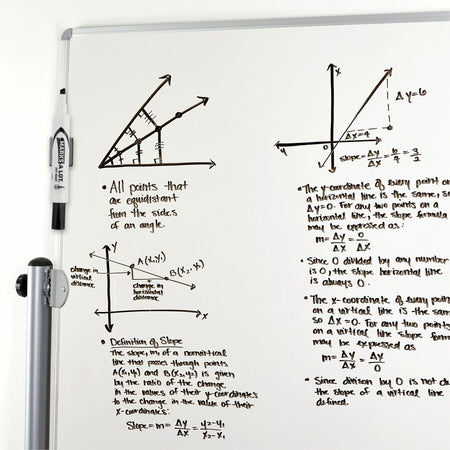 MARKS-A-LOT
• All points that
are equidistant
from the sides
of an angle.
Y
A(x₁,y₁)
B(x₂,y₂)
change in
vertical
distance
change in
horizontal
distance
x
• Definition of Slope
The slope, m, of a nonvertical
line that passes through points
A(x₁,y₁) and B(x₂,y₂) is given
by the ratio of the change
in the values of their y-coordinates
to the change in the value of their
x-coordinates:
Slope = m = Δy/Δx = y₂-y₁/x₂-x₁
x
Δy=6
Δx=4
y
0
slope = Δy/Δx = 6/4 = 3/2
• The y-coordinate of every point on
a horizontal line is the same, so
Δy=0. For any two points on a
horizontal line, the slope formula
may be expressed as:
m = Δy/Δx = 0/Δx
• Since 0 divided by any number
is 0, the slope horizontal line
is always 0.
• The x-coordinate of every point
on a vertical line is the same
so Δx = 0. For any two points
on a vertical line slope form
may be expressed as
m = Δy/Δx = Δy/0
• Since divison by 0 is not de
the slope of a vertical line
defined.